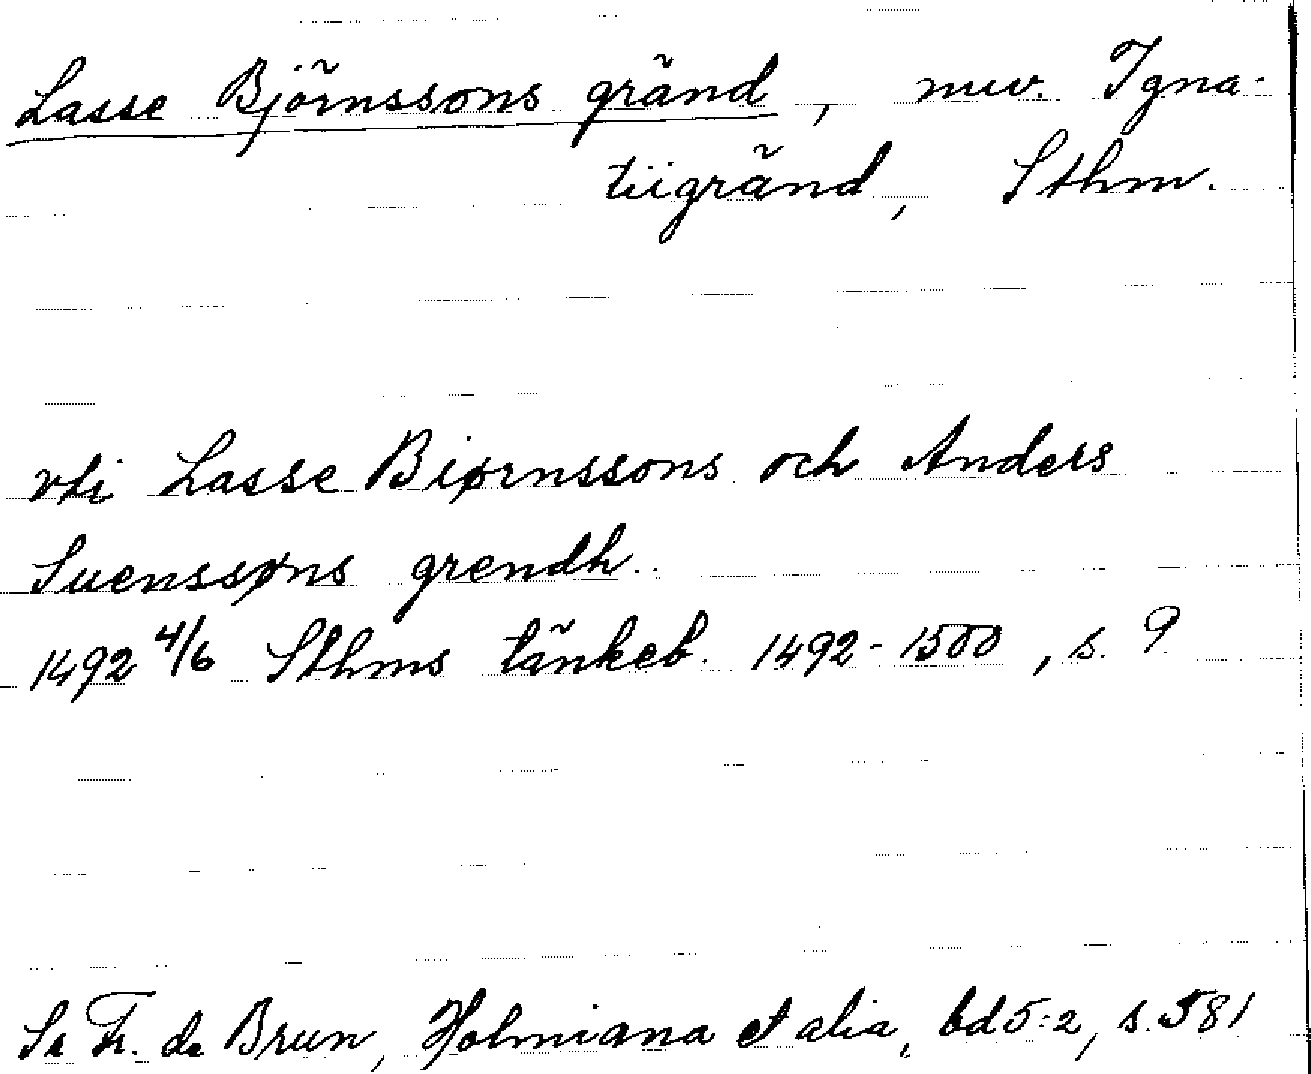 Lasse Björnssons gränd, nuv. Igna-
tiigränd, Sthm.
vti Lasse Biørnssons och Anders
Suenssøns grendh.
1492 4/6 Sthms tänkeb. 1492-1500, s. 9
Se Fr. de Brun, Holmiana et alia, bd 5:2, s. 581